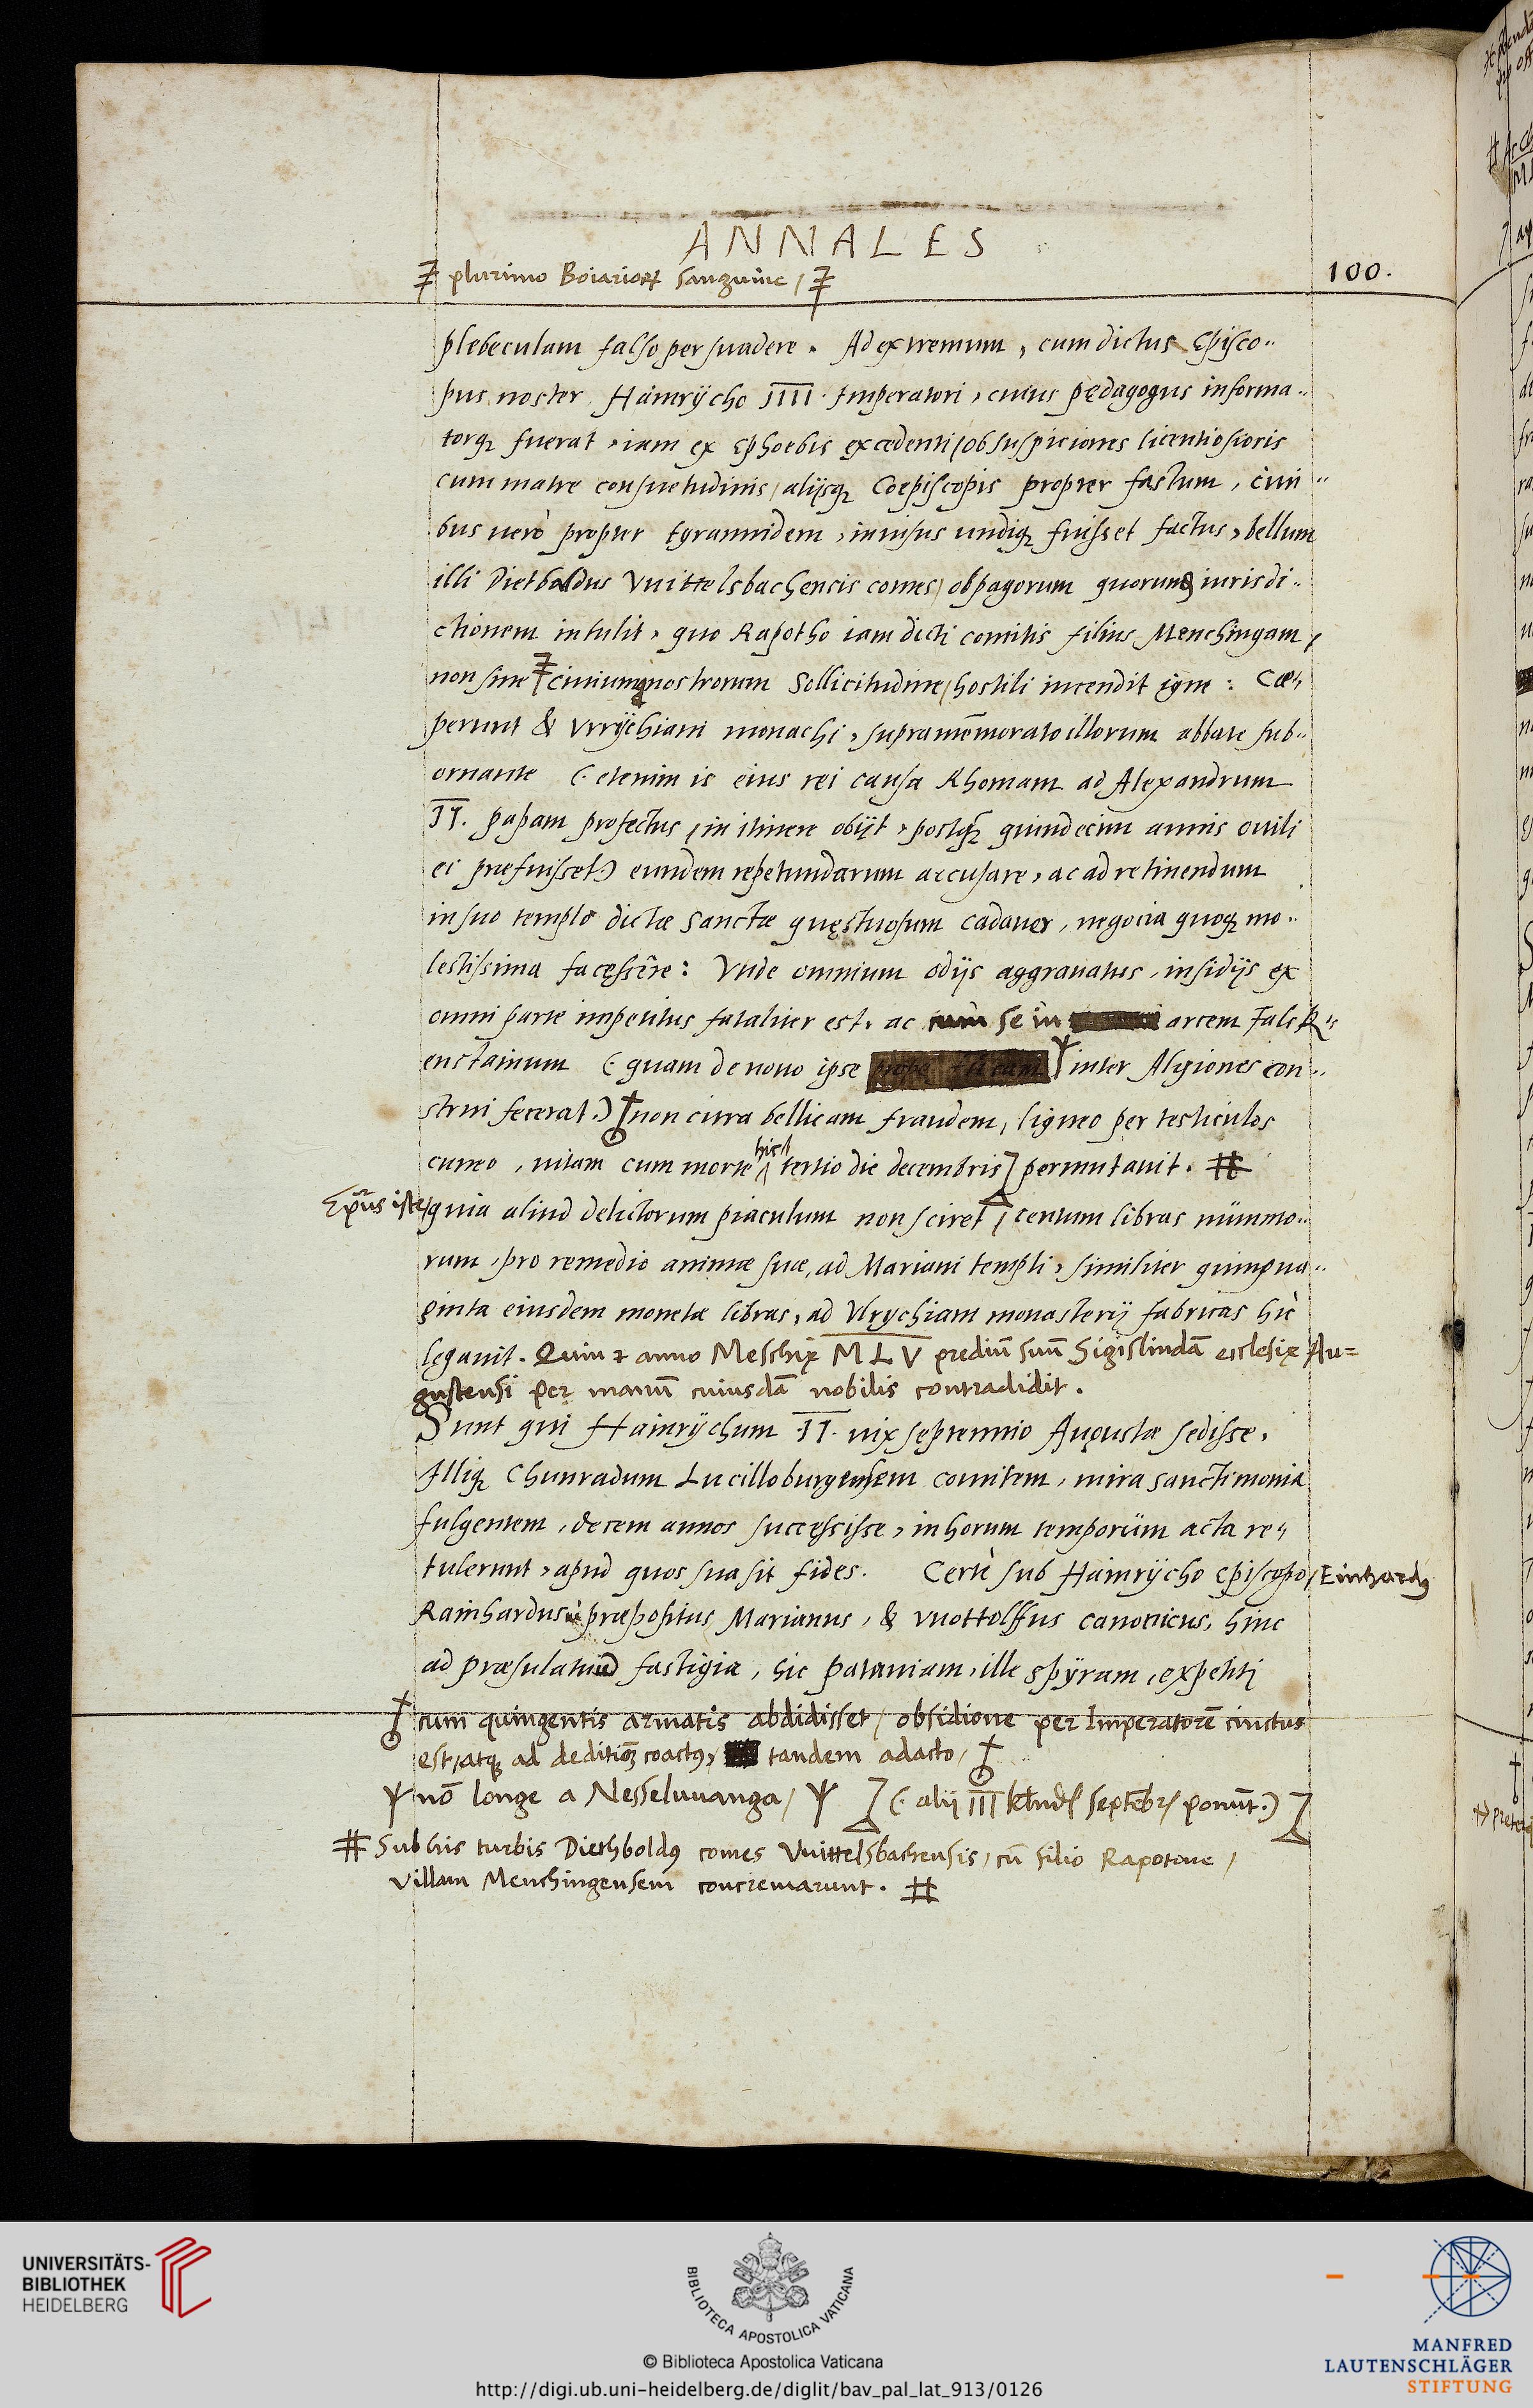 ANNALES
plurimo Boiarioꝝ sanguine /
100.
plebeculam falso persuadere. Ad extremum, cum dictus Episco..
pus noster Hainrÿcho IIII. Imperatori, cuius pędagogus informa..
torqꝫ fuerat, iam ex Ephoebis excedenti / ob suspiciones licentiosioris
cum matre consuetudinis / alijsqꝫ Coepiscopis propter fastum, ciui..
bus uerò propter tyrannidem, inuisus undiqꝫ fuisset factus, bellum
illi Dietbaldus Vuittelsbachensis comes / ob pagorum quorundam iurisdi..
ctionem intulit, quo Rapotho iam dicti comitis filius Menchingam /
non sine ciuium nostrorum sollicitudine / hostili incendit igne: Cœ..
perunt & Vrrÿchiani monachi, supramēmorato illorum abbate sub..
ornante (. etenim is eius rei causa Rhomam ad Alexandrum
II. papam profectus / in itinere obijt, postqꝫ quindecim annis ouili
ei præfuisset.) eundem repetundarum accusare, ac ad retinendum
in suo templo dictæ Sanctæ quęstuosum cadauer, negocia quoqꝫ mo..
lestissima facessêre: Vnde omnium odijs aggrauatus, insidijs ex
omni parte impetitus fataliter est, ac cum se in arcem Falck..
enstainum (. quam de nouo ipse inter Algiones con..
strui fecerat.) non citra bellicam fraudem, ligneo per testiculos
cuneo, uitam cum morte hic tertio die decembris permutauit.
Ep̄us iste / quia aliud delictorum piaculum non sciret / centum libras nummo..
rum, pro remedio animæ suæ, ad Mariani templi, similiter quinqua..
ginta eiusdem monetæ libras, ad Vlrychiani monasterij fabricas hic
legauit. Quin & anno Meschiæ MLV prediū suū Sigislindā ecclesiæ Au=
gustensi per manū cuiusdā nobilis contradidit.
Sunt qui Hainrÿchum II. uix septennio Augustæ sedisse,
Illiqꝫ Chunradum Lucilloburgensem comitem, mira sanctimonia
fulgentem, decem annos successisse, in horum temporum acta re..
tulerunt, apud quos sua sit fides. Certè sub Hainrÿcho episcopo / Einhardꝰ
Rainhardus præpositus Marianus, & Vuottolffus canonicus, hinc
ad præsulatuū fastigia, hic Patauiam, ille Spÿram, expetiti
cum quingentis armatis abdidisset / obsidione per Imperatorē cinctus
est / atqꝫ ad deditionē coactꝰ, tandem adacto /
nō longe a Nesseluuanga / (. alij III kalnds septēbr ponūt.)
Sub his turbis Diethboldꝰ comes Vuittelsbachensis / cū filio Rapotone /
villam Menchingensem concremarunt.
UNIVERSITÄTS-
BIBLIOTHEK
HEIDELBERG
BIBLIOTECA APOSTOLICA VATICANA
© Biblioteca Apostolica Vaticana
http://digi.ub.uni-heidelberg.de/diglit/bav_pal_lat_913/0126
MANFRED
LAUTENSCHLÄGER
STIFTUNG